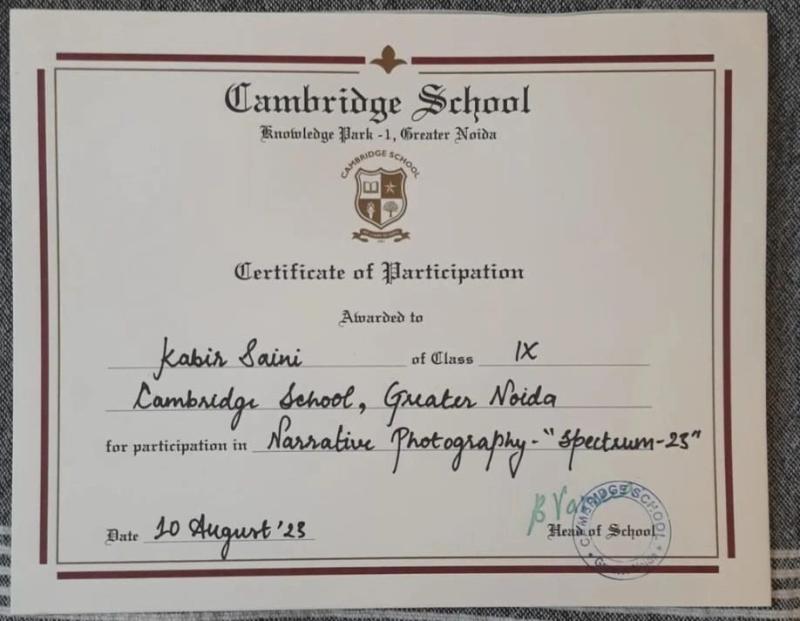 Cambridge School
Knowledge Park -1, Greater Noida
CAMBRIDGE SCHOOL
Certificate of Participation
Awarded to
Kabir Saini of Class IX
Cambridge School, Greater Noida
for participation in Narrative Photography-"Spectrum-23"
Date 10 August '23
Head of School
CAMBRIDGE SCHOOL